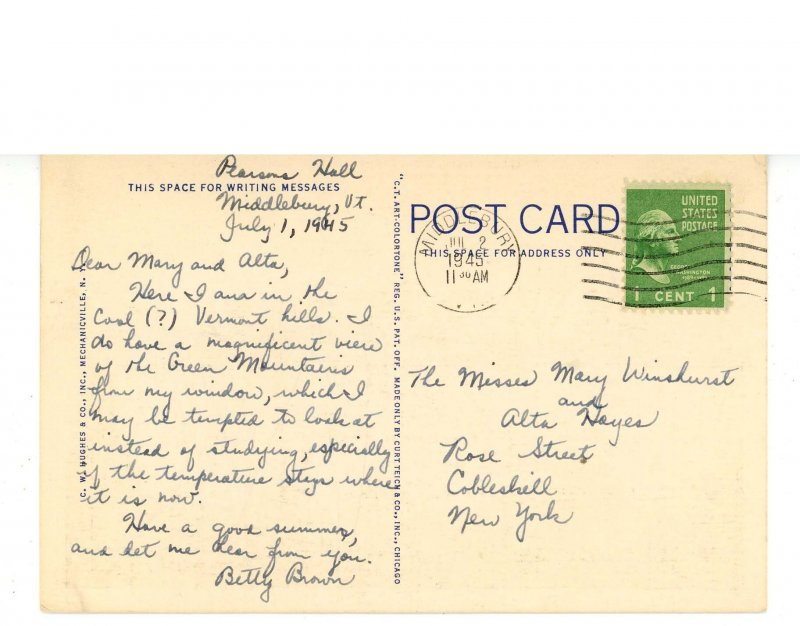 Pearsons Hall
THIS SPACE FOR WRITING MESSAGES
Middlebury, Vt.
July 1, 1945
Dear Mary and Alta,
Here I am in the
Cool (?) Vermont hills. I
do have a magnificent view
of the Green Mountains
from my window, which I
may be tempted to look at
instead of studying, especially
if the temperature stays where
it is now.
Have a good summer,
and let me hear from you.
Betty Brown
C. W. HUGHES & CO., INC., MECHANICVILLE, N. Y.
"C.T. ART-COLORTONE" REG. U.S. PAT. OFF. MADE ONLY BY CURT TEICH & CO., INC., CHICAGO
POST CARD
THIS SPACE FOR ADDRESS ONLY
MIDDLEBURY
JUL 2
1945
11 30 AM
UNITED
STATES
POSTAGE
WASHINGTON
1 CENT 1
The Misses Mary Winshurst
and
Alta Hayes
Rose Street
Cobleskill
New York